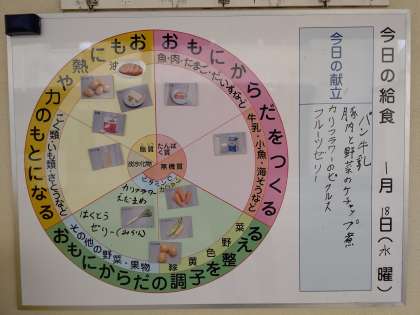 今日の給食 一月18日(水曜)
今日の献立
パン 牛乳
豚肉と野菜のケチャップ煮
カリフラワーのピクルス
フルーツゼリー
おもにからだをつくる
魚・肉・たまご・だいずなど
牛乳・小魚・海そうなど
おもにからだの調子を整える
緑黄色野菜
その他の野菜・果物
おもに熱や力のもとになる
こく類・いも類・さとうなど
油
脂質
たんぱく質
炭水化物
無機質
カリフラワー
えだまめ
はくとう
ゼリー(みかん)